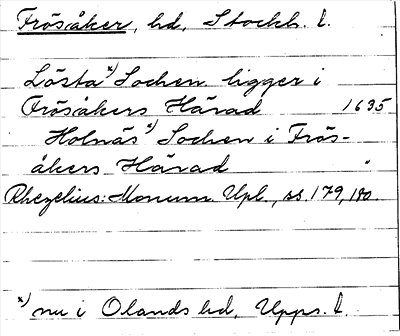 Frösåker, hd, Stockh. l.
Lösta x) Sochen ligger i
Frösåkers Härad 1635
Holnäs x) Sochen i Frös-
åkers Härad "
Rhezelius: Monum. Upl., ss. 179, 180.
x) nu i Olands hd, Upps. l.